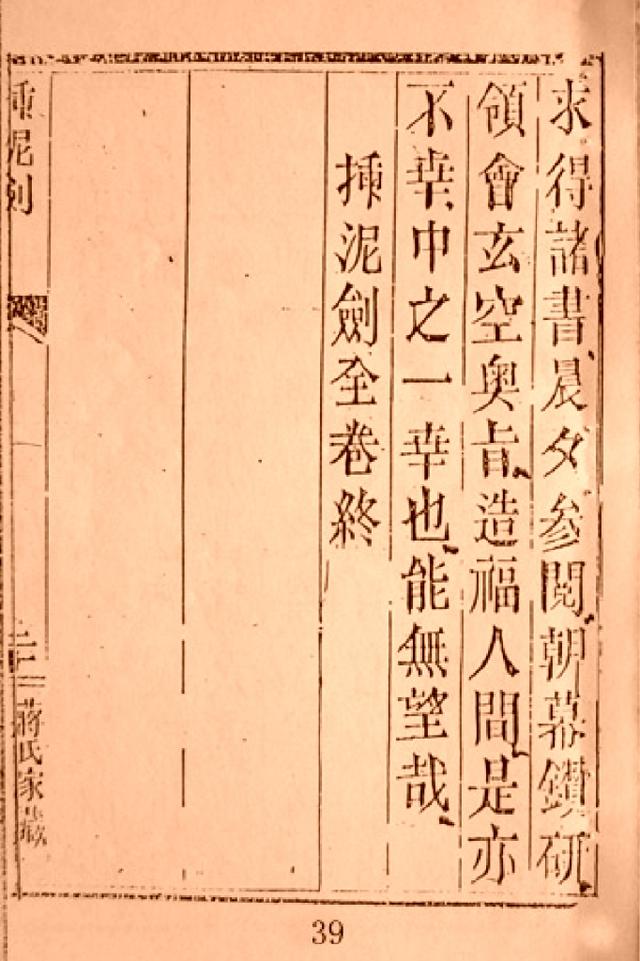 求得諸書晨夕参閱朝幕鑽研
領會玄空奥旨造福人間是亦
不幸中之一幸也能無望哉
揷泥劍全卷終
揷泥劍
二十
蔣氏家藏
39